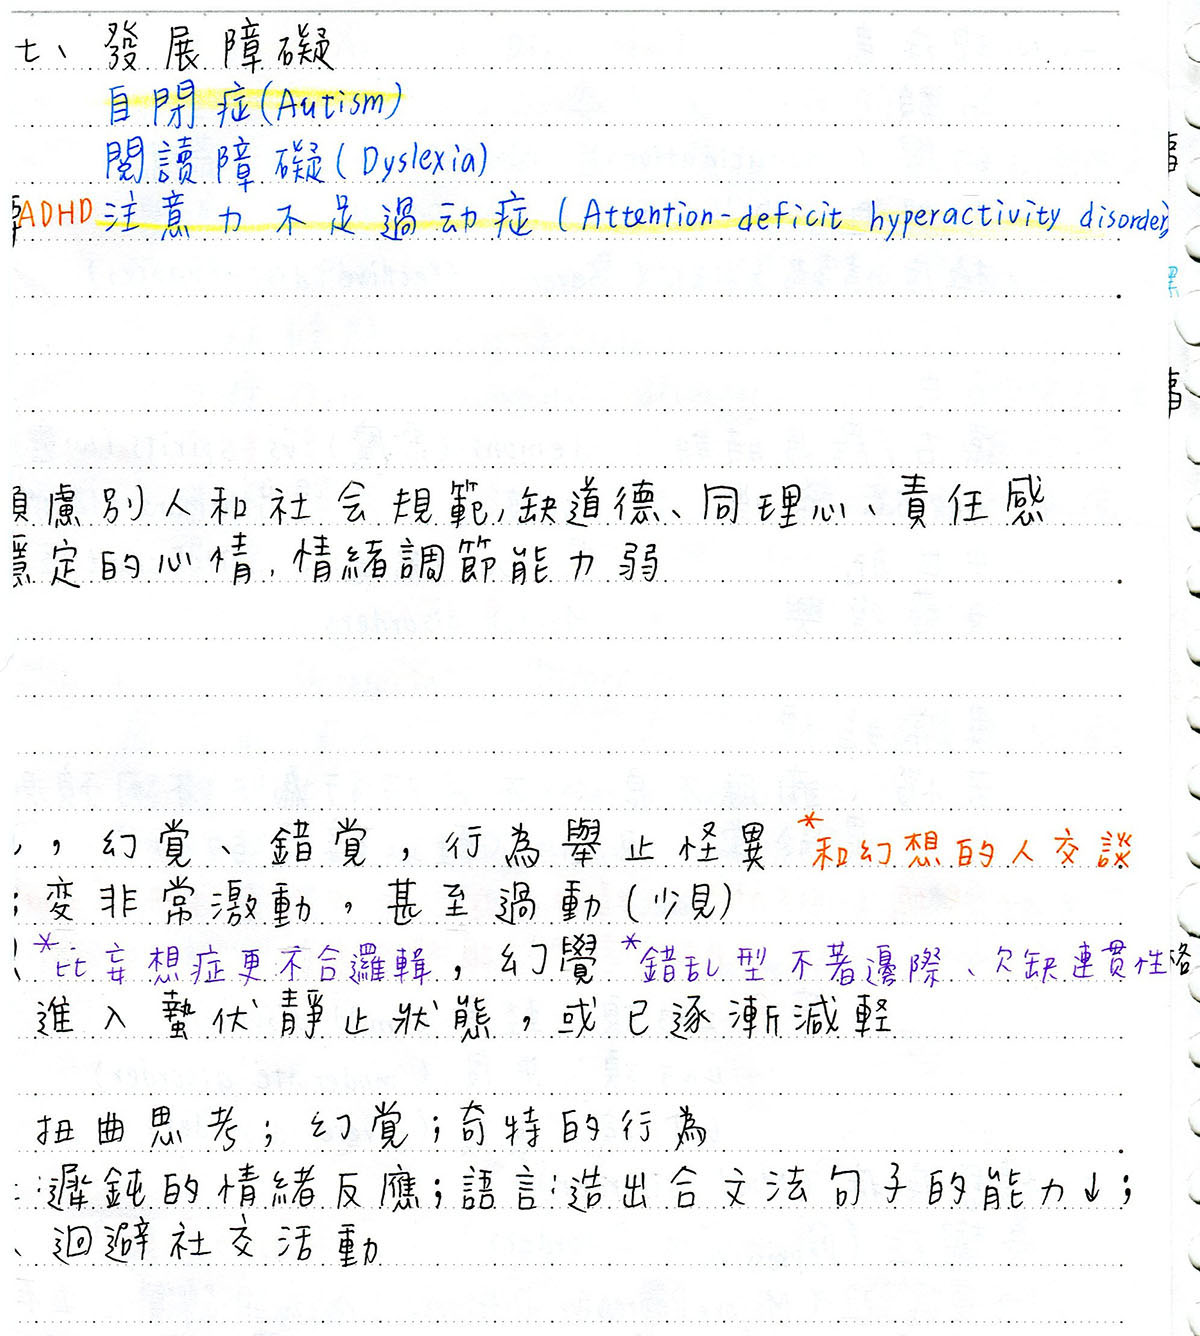 七、發展障礙
自閉症(Autism)
閱讀障礙(Dyslexia)
ADHD 注意力不足過动症(Attention-deficit hyperactivity disorder)
慮別人和社会規範,缺道德、同理心、責任感
定的心情,情緒調節能力弱
,幻覚、錯覚,行為舉止怪異 *和幻想的人交談
;变非常激動,甚至過動(少見)
*比妄想症更不合邏輯,幻覺 *錯乱型不著邊際、欠缺連貫性
進入蟄伏靜止狀態,或已逐漸減輕
扭曲思考;幻覚;奇特的行為
:遲鈍的情緒反應;語言:造出合文法句子的能力↓;
、迴避社交活動